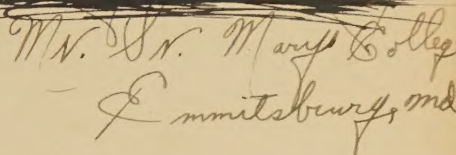 Mt. St. Mary's Colleg
Emmitsburg, Md